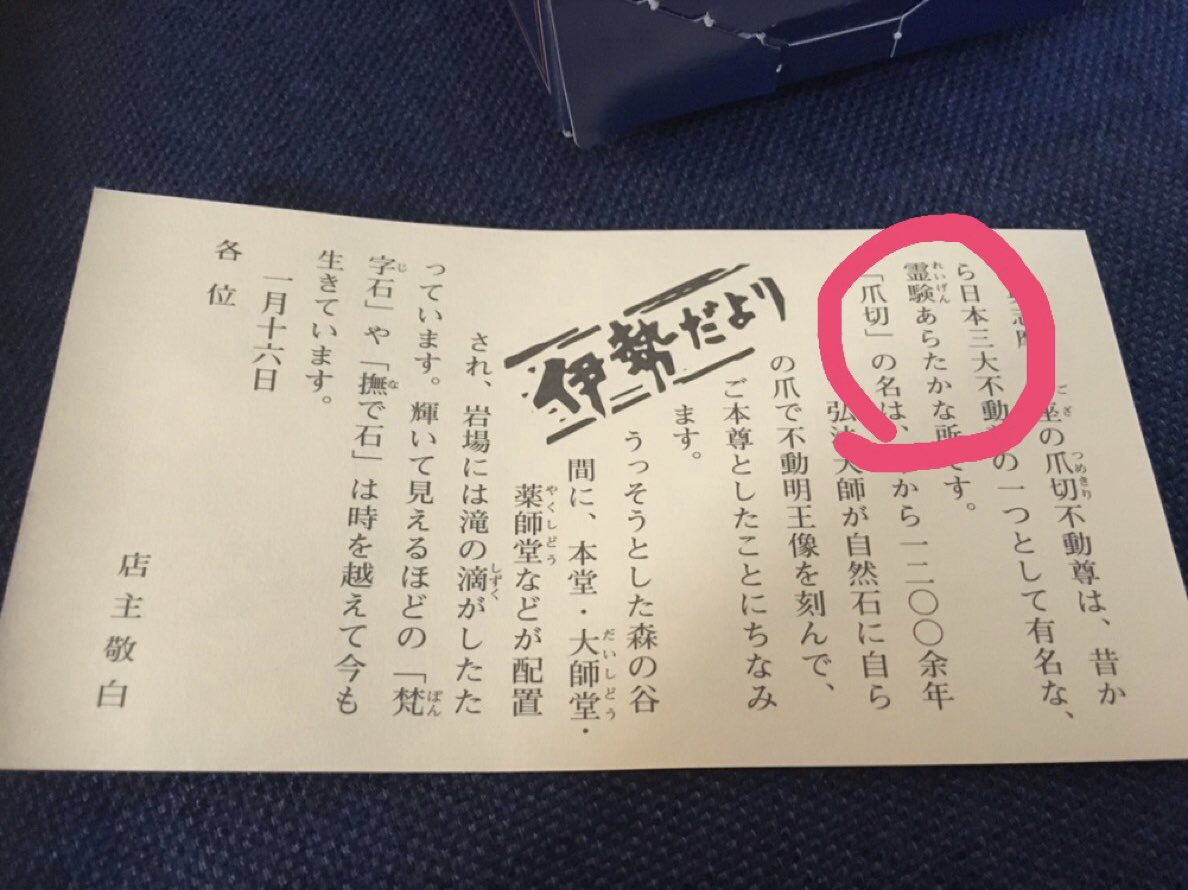 座の爪切不動尊は、昔か
ら日本三大不動尊の一つとして有名な、
霊験あらたかな所です。
「爪切」の名は、から一二〇〇余年
弘法大師が自然石に自ら
の爪で不動明王像を刻んで、
ご本尊としたことにちなみ
ます。
伊勢だより
うっそうとした森の谷
間に、本堂・大師堂・
薬師堂などが配置
され、岩場には滝の滴がしたた
っています。輝いて見えるほどの「梵
字石」や「撫で石」は時を越えて今も
生きています。
一月十六日
各位
店主敬白